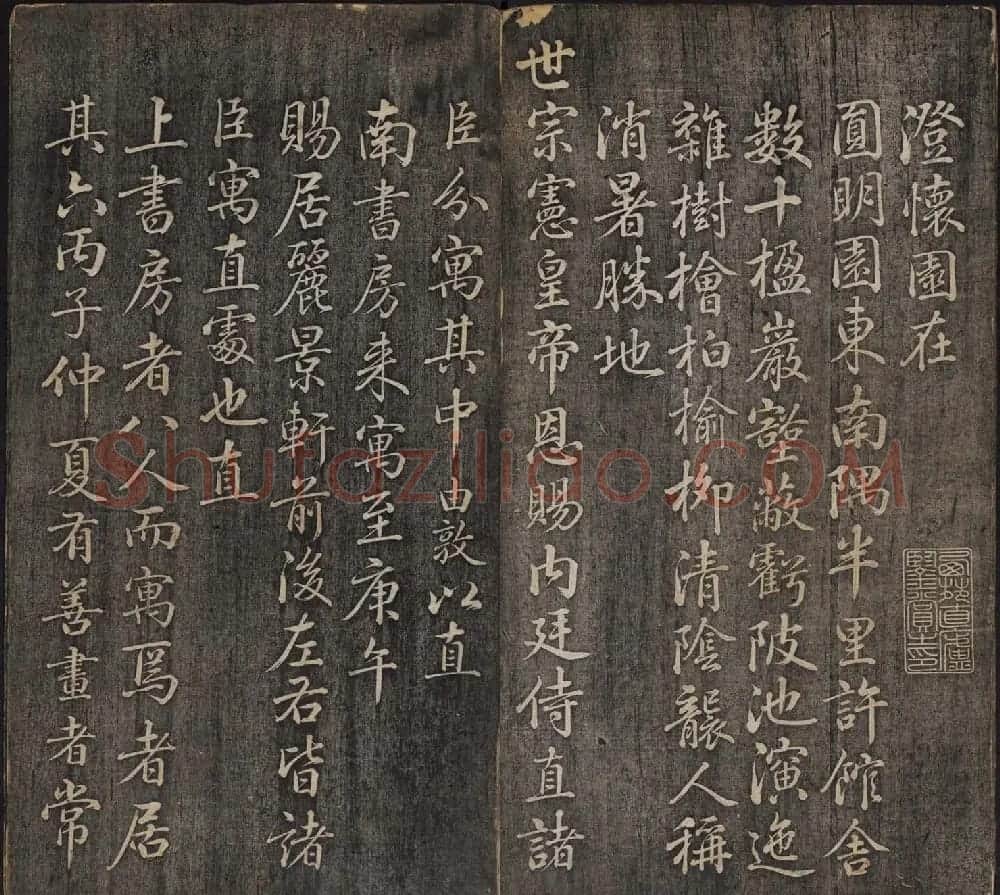 澄懷園在
圓明園東南隅半里許館舍
數十楹巖壑蔽虧陂池演迤
雜樹檜柏榆柳清陰襲人稱
消暑勝地
世宗憲皇帝恩賜内廷侍直諸
臣分寓其中由敦以直
南書房来寓至庚午
賜居麗景軒前後左右皆諸
臣寓直處也直
上書房者八人而寓焉者居
其六丙子仲夏有善畫者常
Shutaziliao.COM